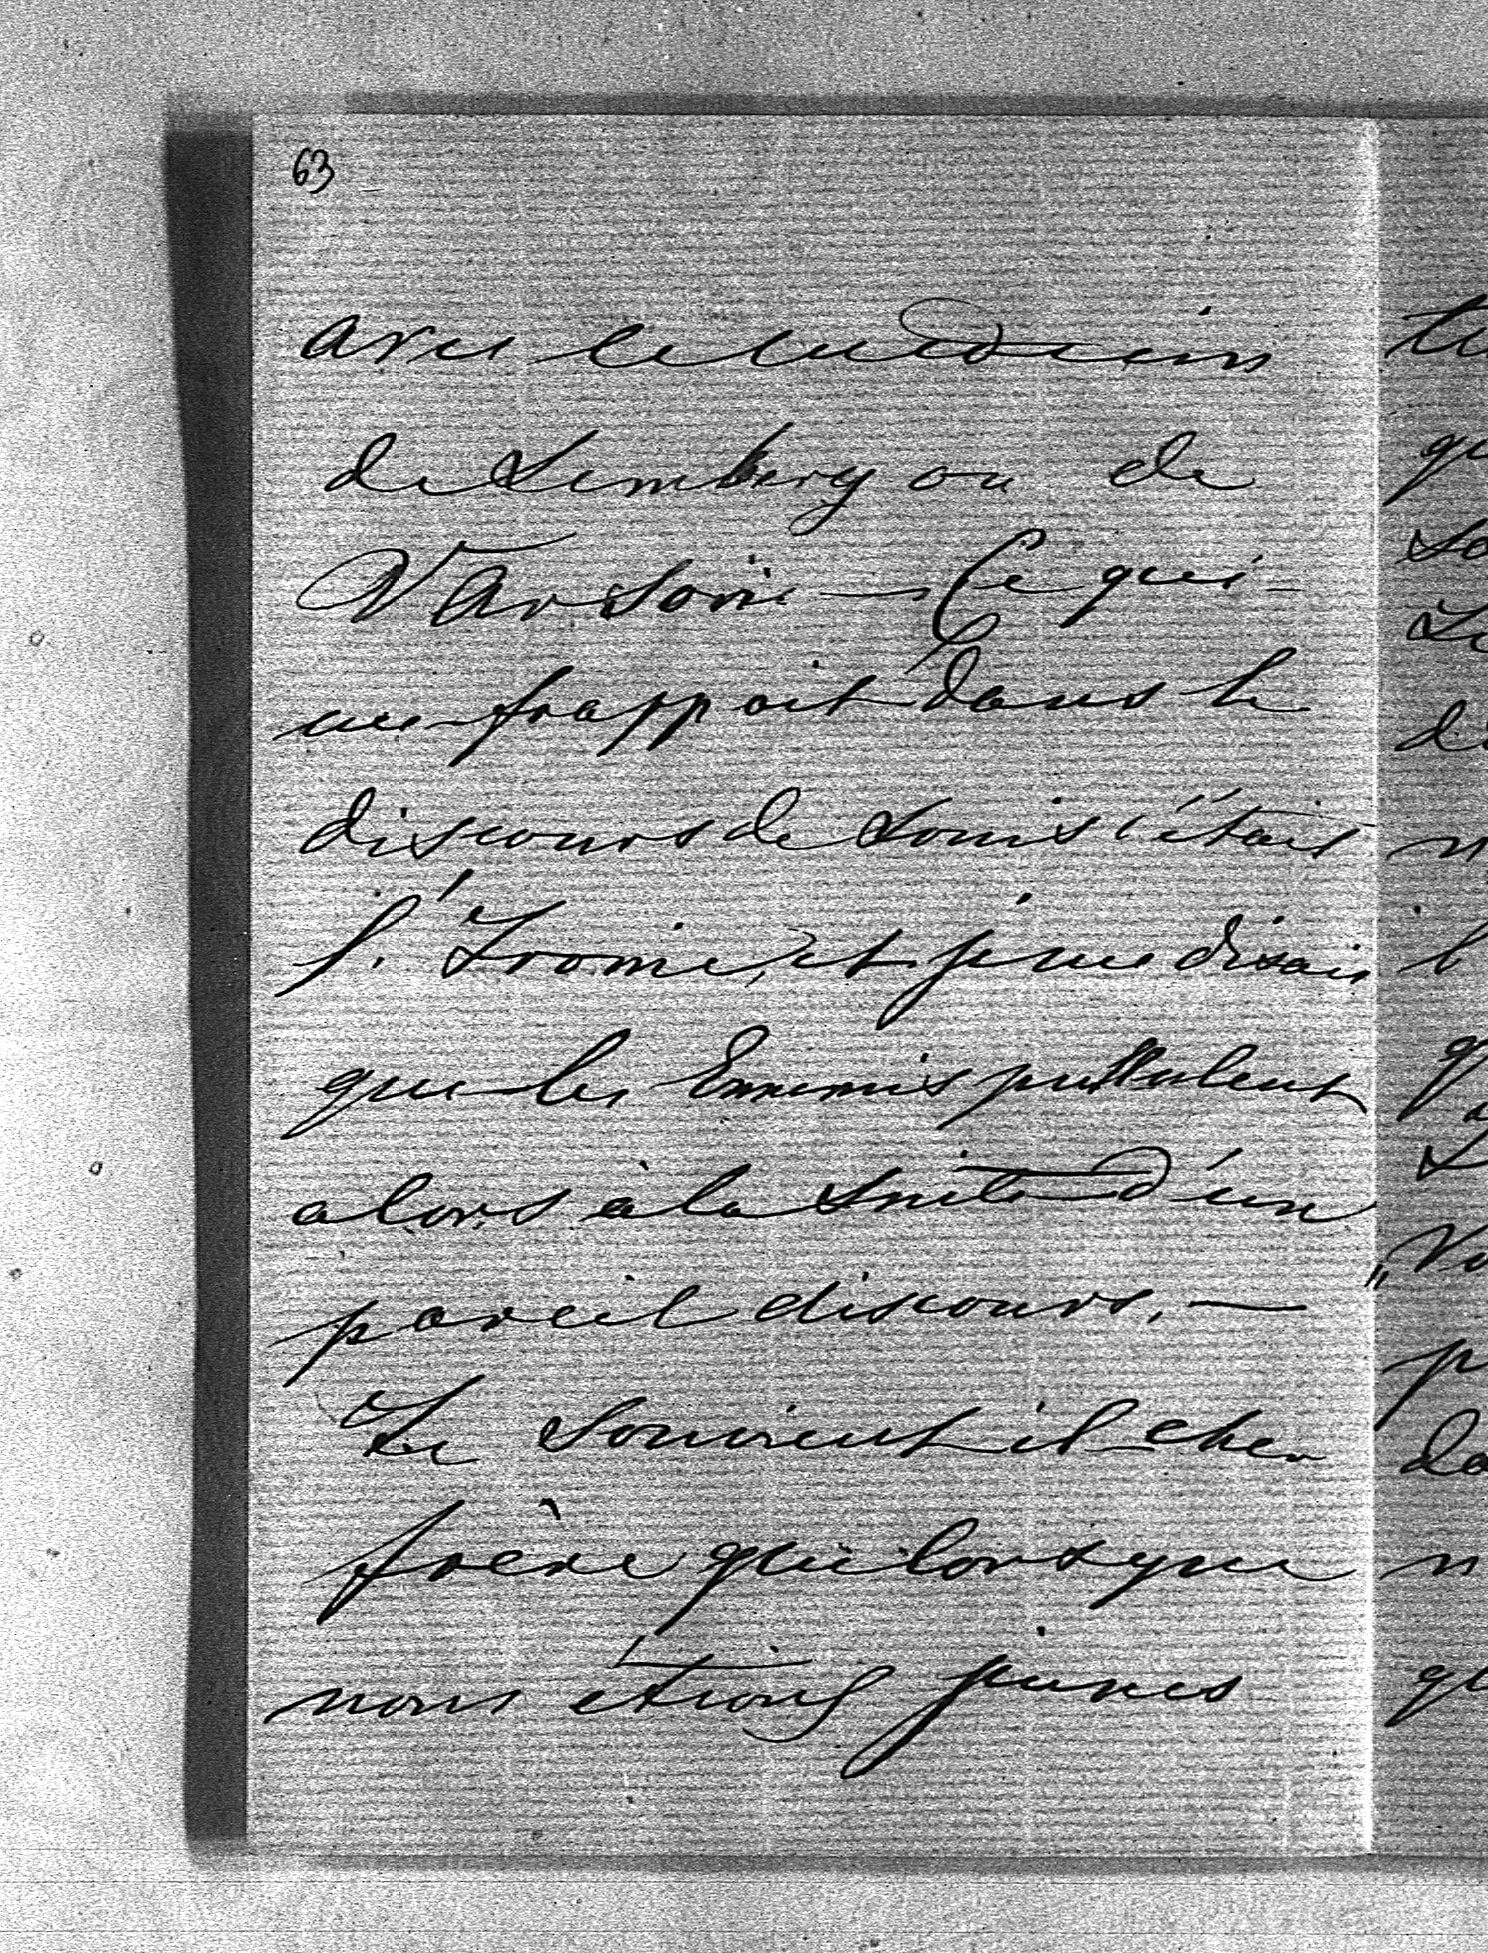 63
avec le medecin
de Lemberg ou de
Varsovie — Ce qui
me frappait dans le
discours de Louis c'étais
l'Ironie, et je me disais
que les Ennemis pullulent
alors à la suite d'un
pareil discours. —
Te souvient il cher
frère que lorsque
nous étions jeunes